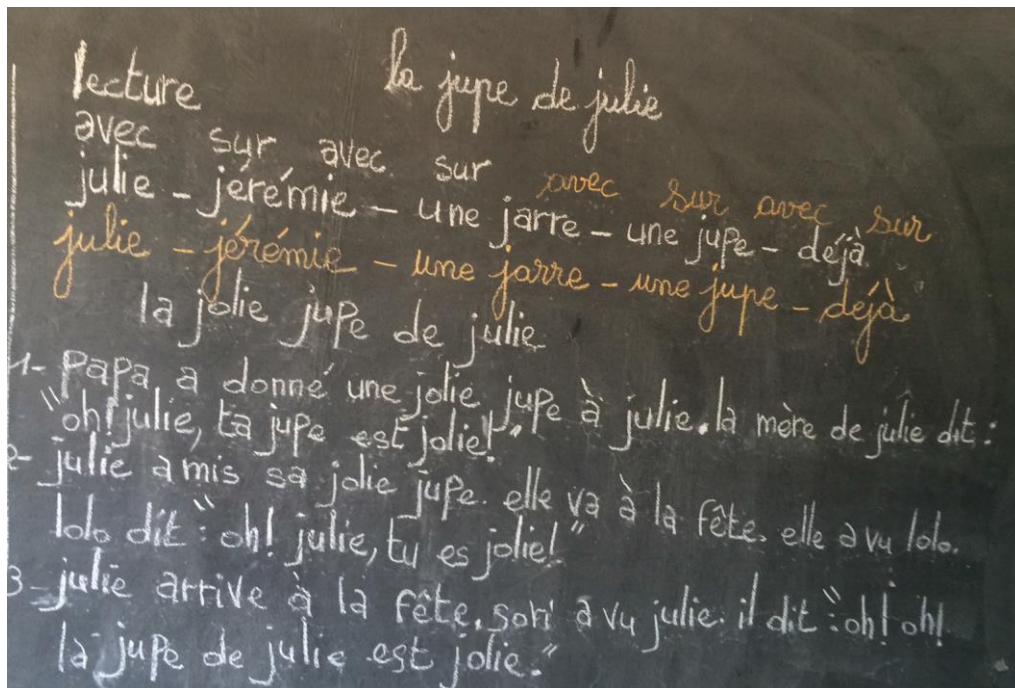 lecture la jupe de julie
avec sur avec sur avec sur avec sur
julie - jérémie - une jarre - une jupe - déjà
julie - jérémie - une jarre - une jupe - déjà
la jolie jupe de julie
1- papa a donné une jolie jupe à julie. la mère de julie dit :
"oh! julie, ta jupe est jolie!"
2- julie a mis sa jolie jupe. elle va à la fête. elle a vu lolo.
lolo dit : "oh! julie, tu es jolie!"
3- julie arrive à la fête. sori a vu julie. il dit : "oh! oh!
la jupe de julie est jolie."